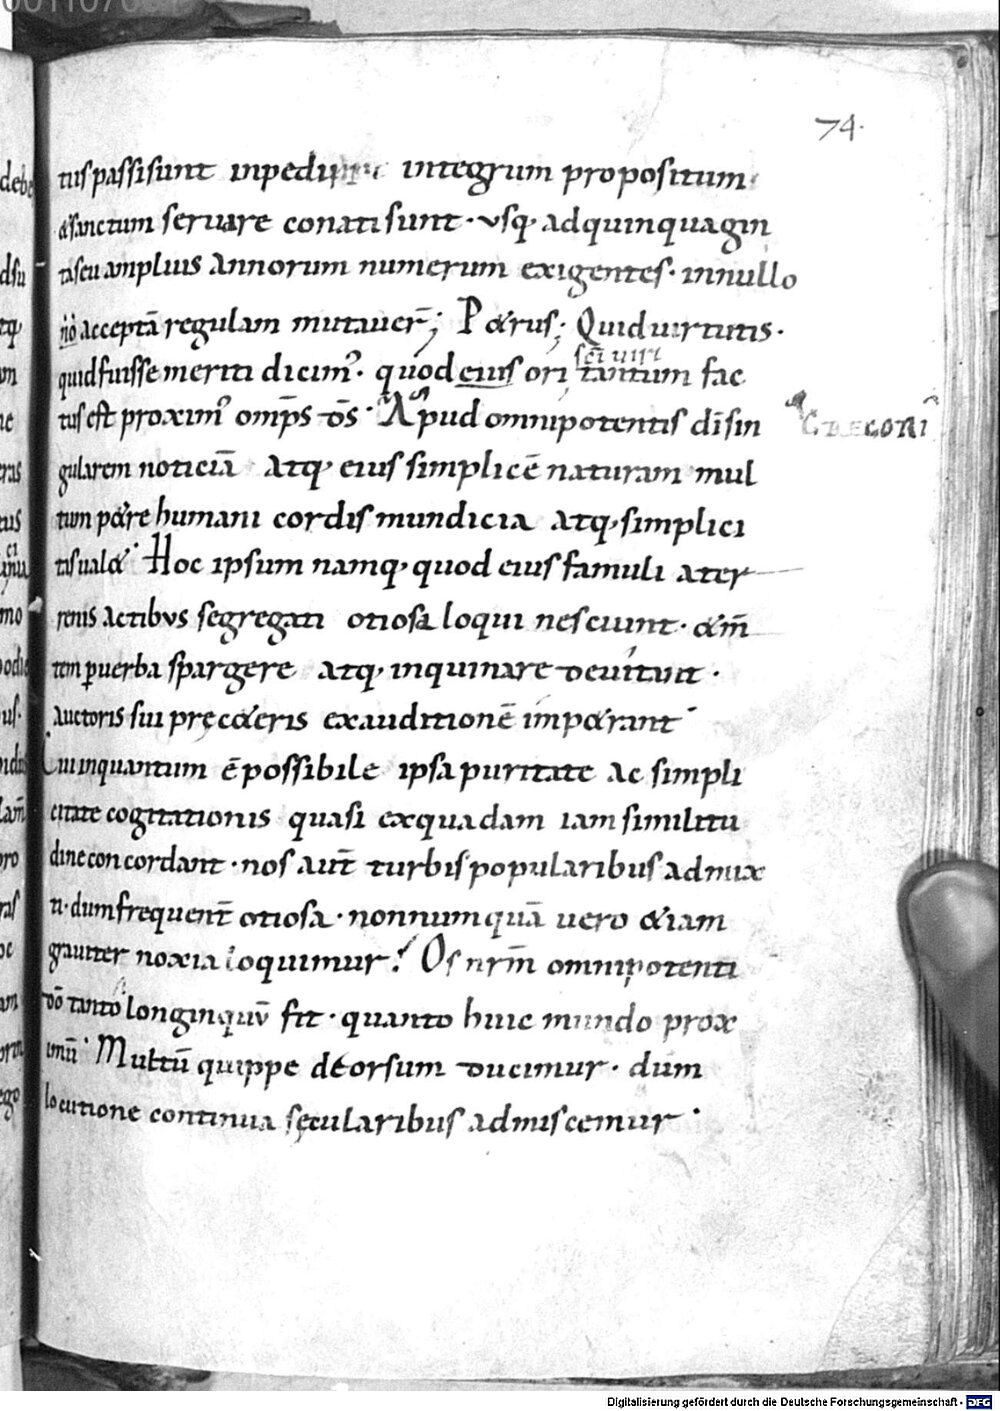 74.
tus passi sunt inpedimu integrum propositum
& sanctum seruare conati sunt · vsq· ad quinquagin
ta seu amplius annorum numerum exigentes · in nullo
nō acceptā regulam mutauer̄; P&rus; Quid uirtutis ·
quid fuisse meriti dicim᾽ · quod eius ori sc̄i uiri tantum fac
tus est proxim᾽ omp̄s d̄s · Apud omnipotentis dī sin
GREGORI᾽
gularem noticiā atq· eius simplicē naturam mul
tum p&re humani cordis mundicia atq· simplici
tas ual& · Hoc ipsum namq· quod eius famuli a ter
renis actibus segregati otiosa loqui nesciunt · & m̄
tem p̱ uerba spargere atq· inquinare deuitant ·
auctoris sui pręc&eris exauditionē imp&rant ·
Cui inquantum ē possibile ipsa puritate ac simpli
citate cogitationis quasi ex quadam iam similitu
dine concordant · nos aut̄ turbis popularibus admix
ti · dum frequent̄ otiosa · nonnumquā uero &iam
grauiter noxia loquimur ? Os nr̄m omnipotenti
dō tanto longinquū fit · quanto huic mundo prox
imū · Multū quippe deorsum ducimur · dum
locutione continua sęcularibus admiscemur ·
debe
dsu
tq·
mo
pro
ego
Digitalisierung gefördert durch die Deutsche Forschungsgemeinschaft - DFG